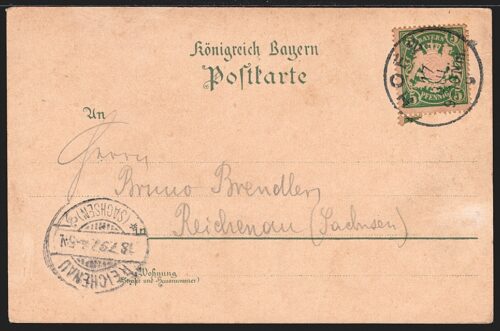 Königreich Bayern
Postkarte
BAYERN
5 PFENNIG 5
HOF
An
Herrn
Bruno Brendler,
Reichenau (Sachsen)
(SACHSEN)
18.7.97
REICHENAU
Wohnung
(Straße und Hausnummer)